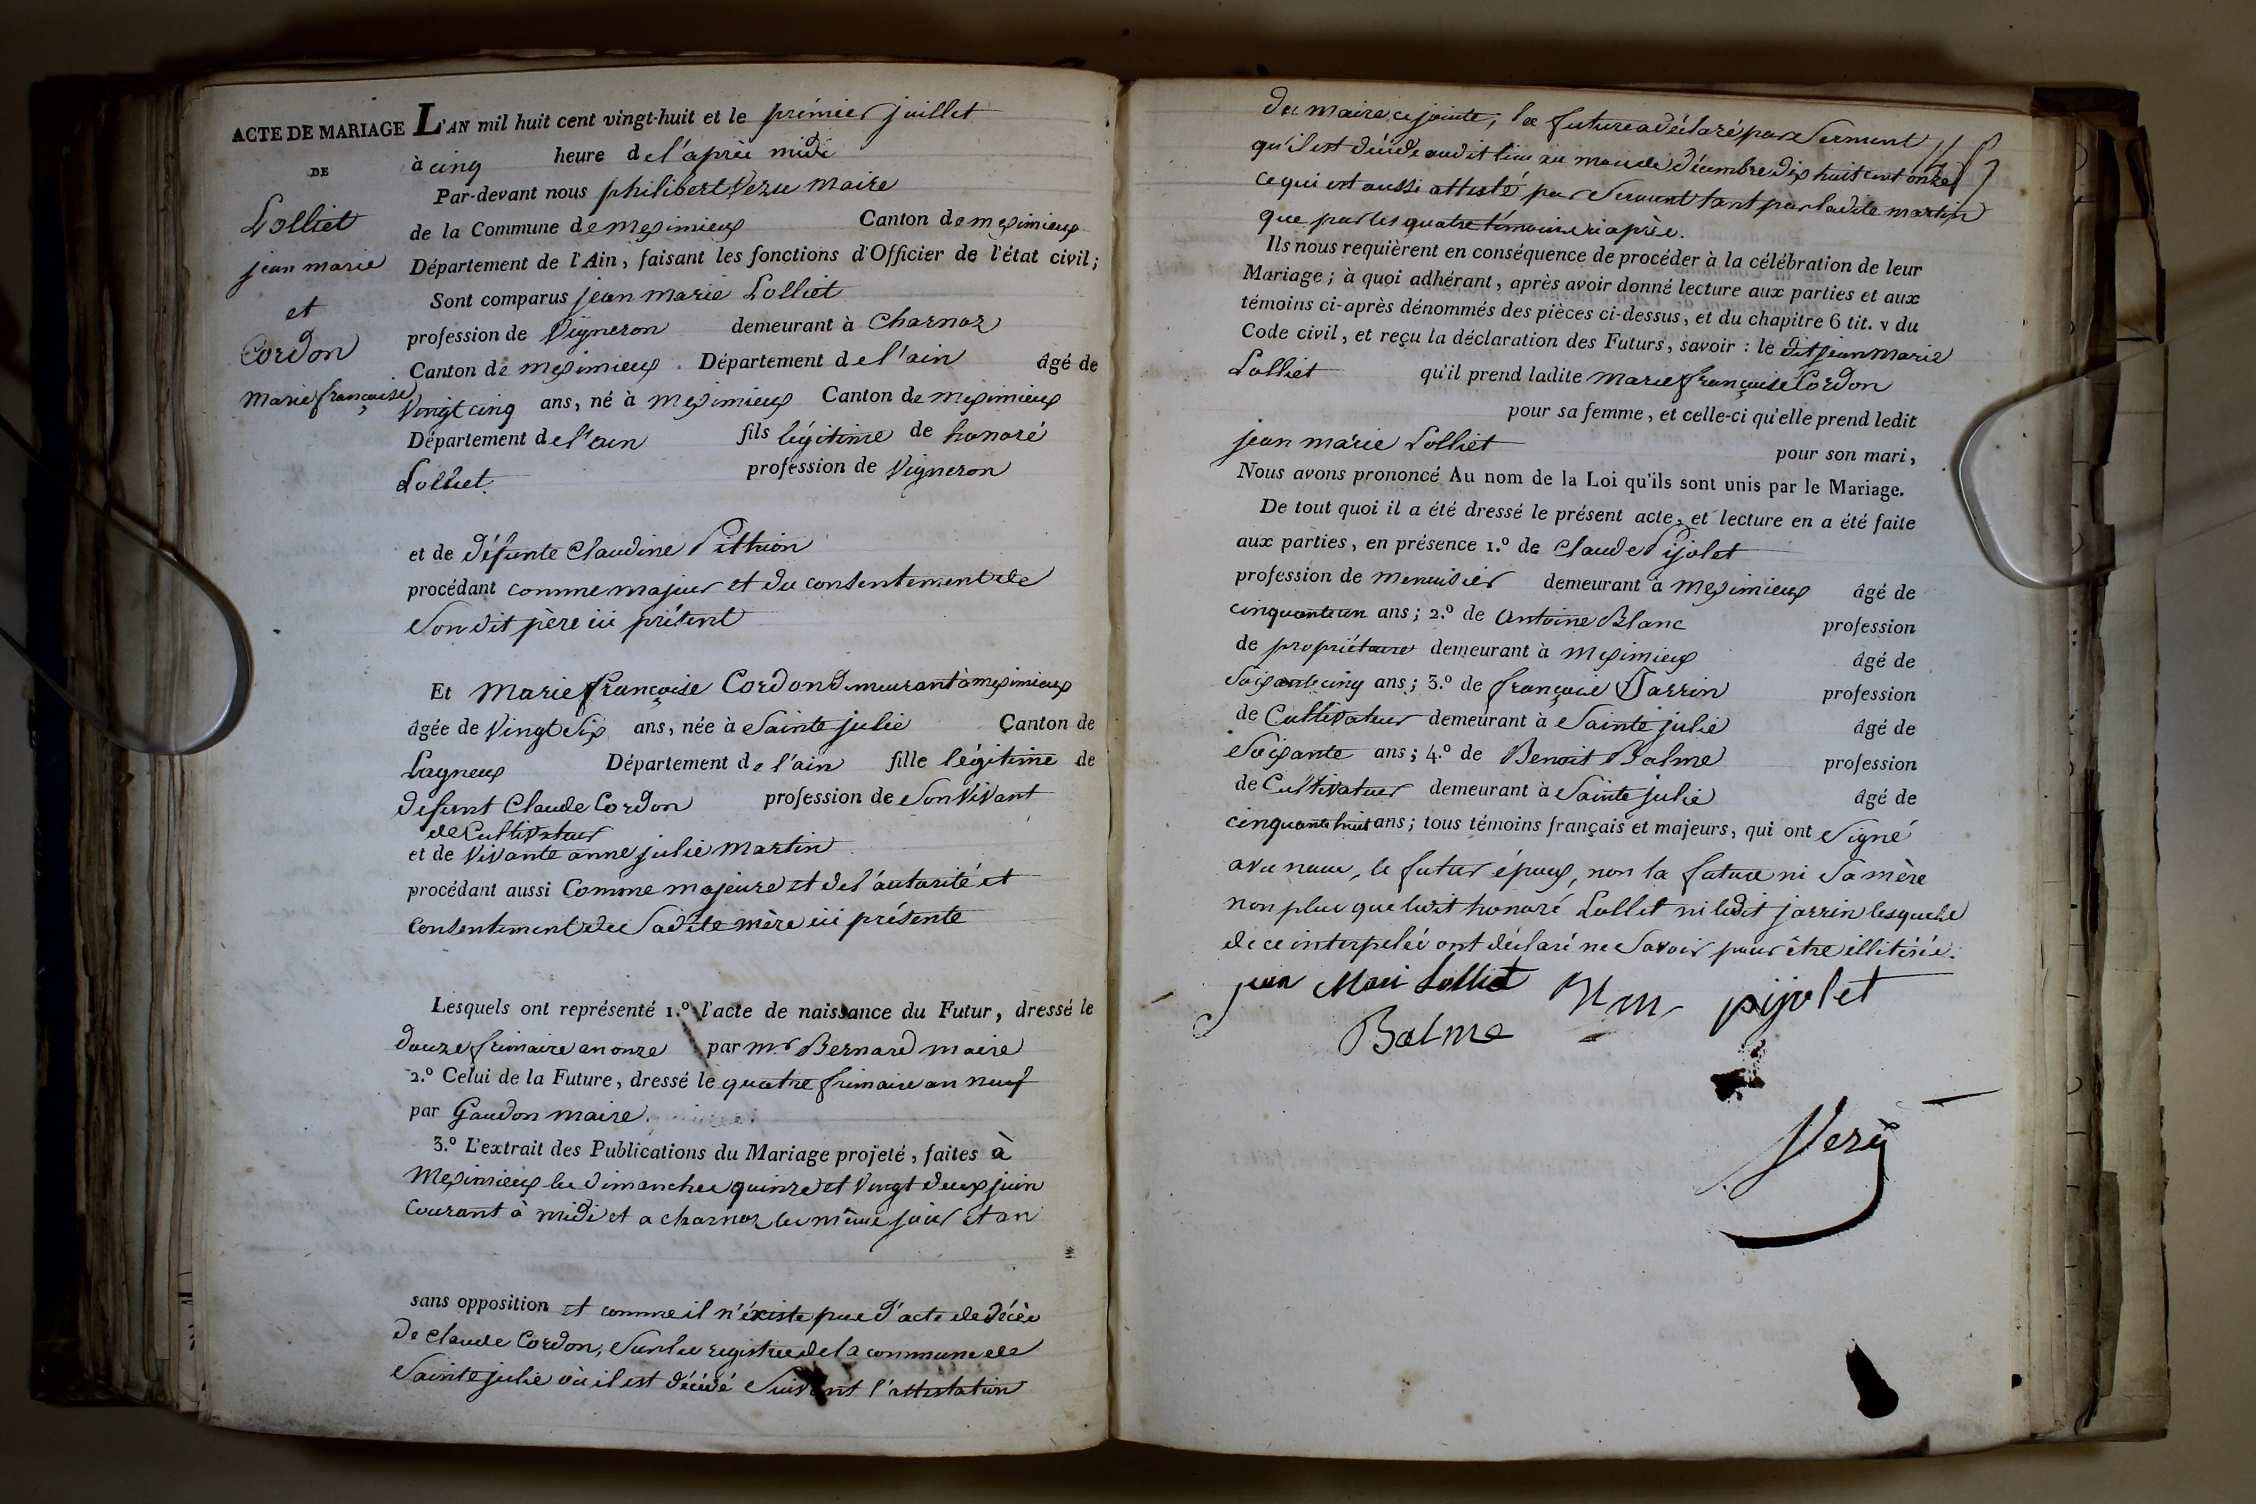 ACTE DE MARIAGE
DE
Lolliet
jean marie
et
Cordon
Marie françoise
L'AN mil huit cent vingt-huit et le prémier juillet
à cinq heure de l'après midi
Par-devant nous philibert Vezu Maire
de la Commune de meximieux Canton de meximieux
Département de l'Ain, faisant les fonctions d'Officier de l'état civil;
Sont comparus jean marie Lolliet
profession de Vigneron demeurant à Charnoz
Canton de meximieux Département de l'ain âgé de
Vingt cinq ans, né à meximieux Canton de meximieux
Département de l'ain fils légitime de honoré
Lolliet profession de Vigneron
et de défunte Claudine Pithion
procédant comme majeur et du consentement de
Son dit père ici présent
Et Marie françoise Cordon demeurant à meximieux
âgée de Vingt Six ans, née à Sainte julie Canton de
Lagneux Département de l'ain fille légitime de
défunt Claude Cordon profession de Son Vivant
de Cultivateur
et de Vivante anne julie Martin
procédant aussi Comme majeure et de l'autorité et
Consentement de Sadite mère ici présente
Lesquels ont représenté 1.º l'acte de naissance du Futur, dressé le
douze frimaire an onze par mr Bernard maire
2.º Celui de la Future, dressé le quatre frimaire an neuf
par Gaudon maire
3.º L'extrait des Publications du Mariage projeté, faites à
Meximieux les dimanches quinze et Vingt deux juin
Courant à midi et a charnoz les même jour et an
sans opposition et comme il n'éxiste pas d'acte de décès
de Claude Cordon, Sur les registres de la commune de
Sainte julie où il est décédé Suivant l'attestation
du maire ci jointe, la future a déclaré par Serment
qu'il est décédé audit lieu au mois de décembre dix huit cent onze
ce qui est aussi attesté par Serment tant par ladite martin
que par les quatre témoins ci après.
Ils nous requièrent en conséquence de procéder à la célébration de leur
Mariage; à quoi adhérant, après avoir donné lecture aux parties et aux
témoins ci-après dénommés des pièces ci-dessus, et du chapitre 6 tit. v du
Code civil, et reçu la déclaration des Futurs, savoir: le dit jean Marie
Lolliet qu'il prend ladite Marie françoise Cordon
pour sa femme, et celle-ci qu'elle prend ledit
jean marie Lolliet pour son mari,
Nous avons prononcé Au nom de la Loi qu'ils sont unis par le Mariage.
De tout quoi il a été dressé le présent acte, et lecture en a été faite
aux parties, en présence 1.º de Claude Pijolet
profession de menuisier demeurant à Meximieux âgé de
cinquante un ans; 2.º de Antoine Blanc profession
de propriétaire demeurant à Meximieux âgé de
Soixante cinq ans; 3.º de françois Jarrin profession
de Cultivateur demeurant à Sainte julie âgé de
Soixante ans; 4.º de Benoit Balme profession
de Cultivateur demeurant à Sainte julie âgé de
cinquante huit ans; tous témoins français et majeurs, qui ont Signé
avec nous, le futur époux, non la future ni Sa mère
non plus que ledit honoré Lolliet ni ledit jarrin lesquels
de ce interpelés ont déclaré ne Savoir pour être illitérés.
jean Mari Lolliet pijolet
Balme
Vezu